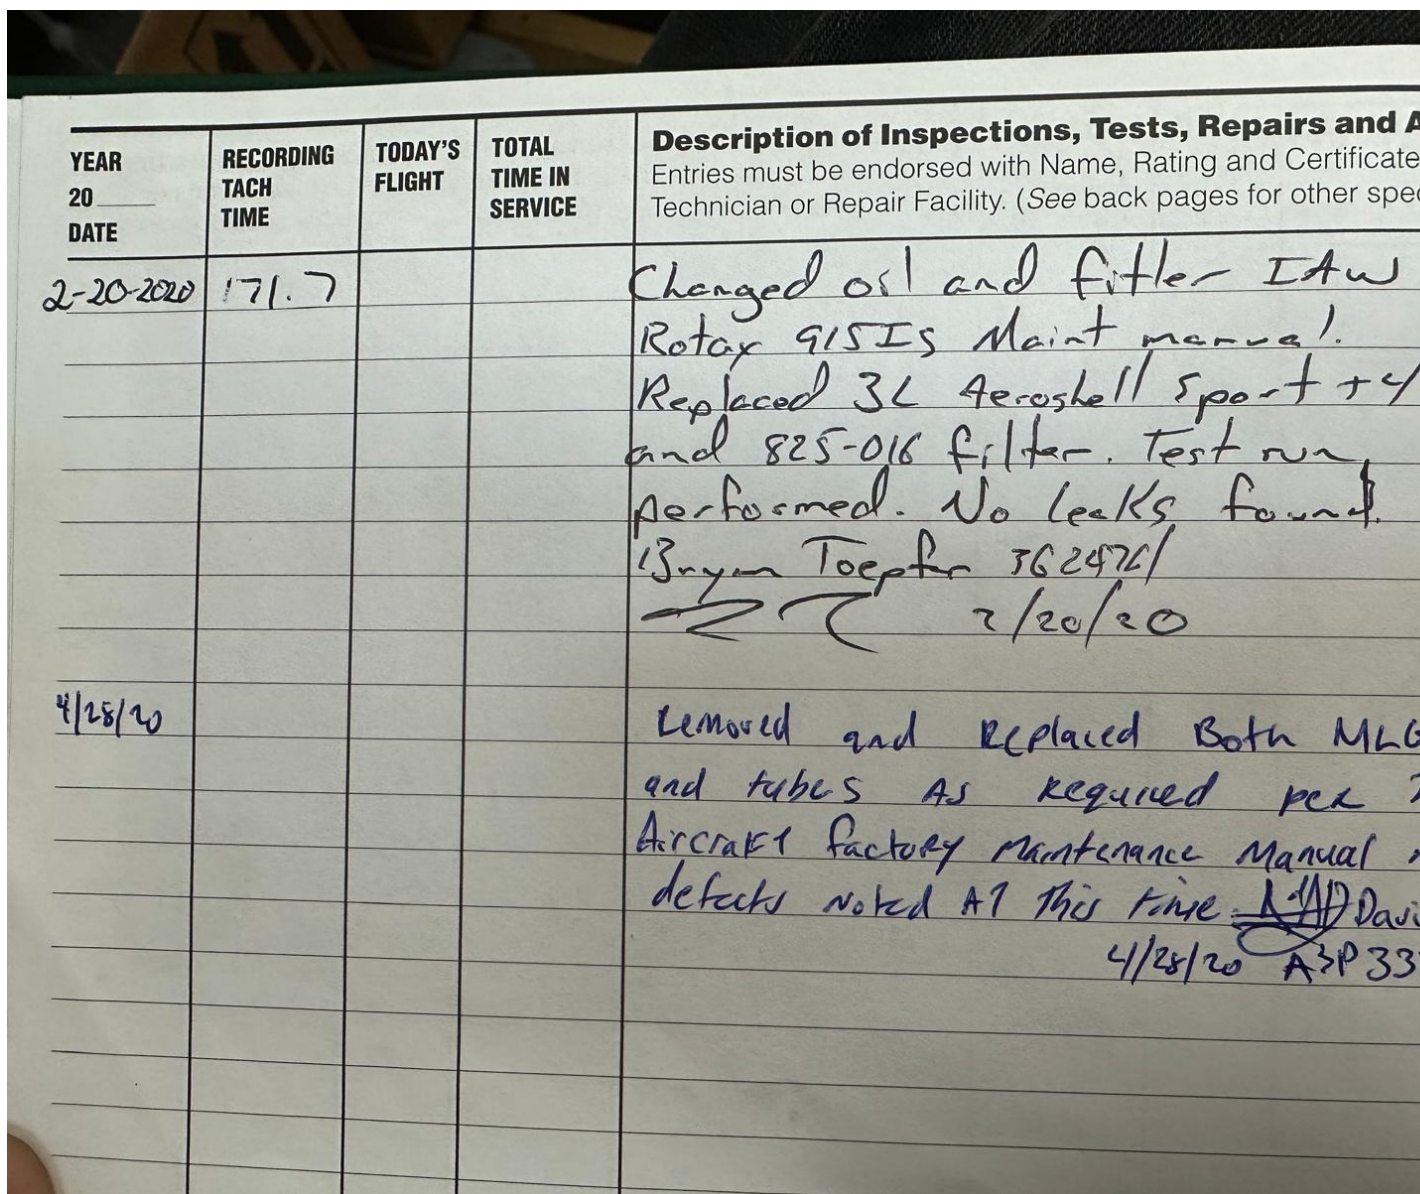 YEAR
20____
DATE
RECORDING
TACH
TIME
TODAY'S
FLIGHT
TOTAL
TIME IN
SERVICE
Description of Inspections, Tests, Repairs and A
Entries must be endorsed with Name, Rating and Certificate
Technician or Repair Facility. (See back pages for other spec
2-20-2020 171.7 Changed oil and fitler IAW
Rotax 915IS Maint manual.
Replaced 3L Aeroshell Sport +4
and 825-016 filter. Test run
performed. No leaks found.
Bryan Toepfer
2/20/20
4/28/20 Removed and Replaced Both MLG
and tubes As Required per
Aircraft factory Maintenance Manual
defects Noted AT This time. Davi
4/28/20 A&P 33